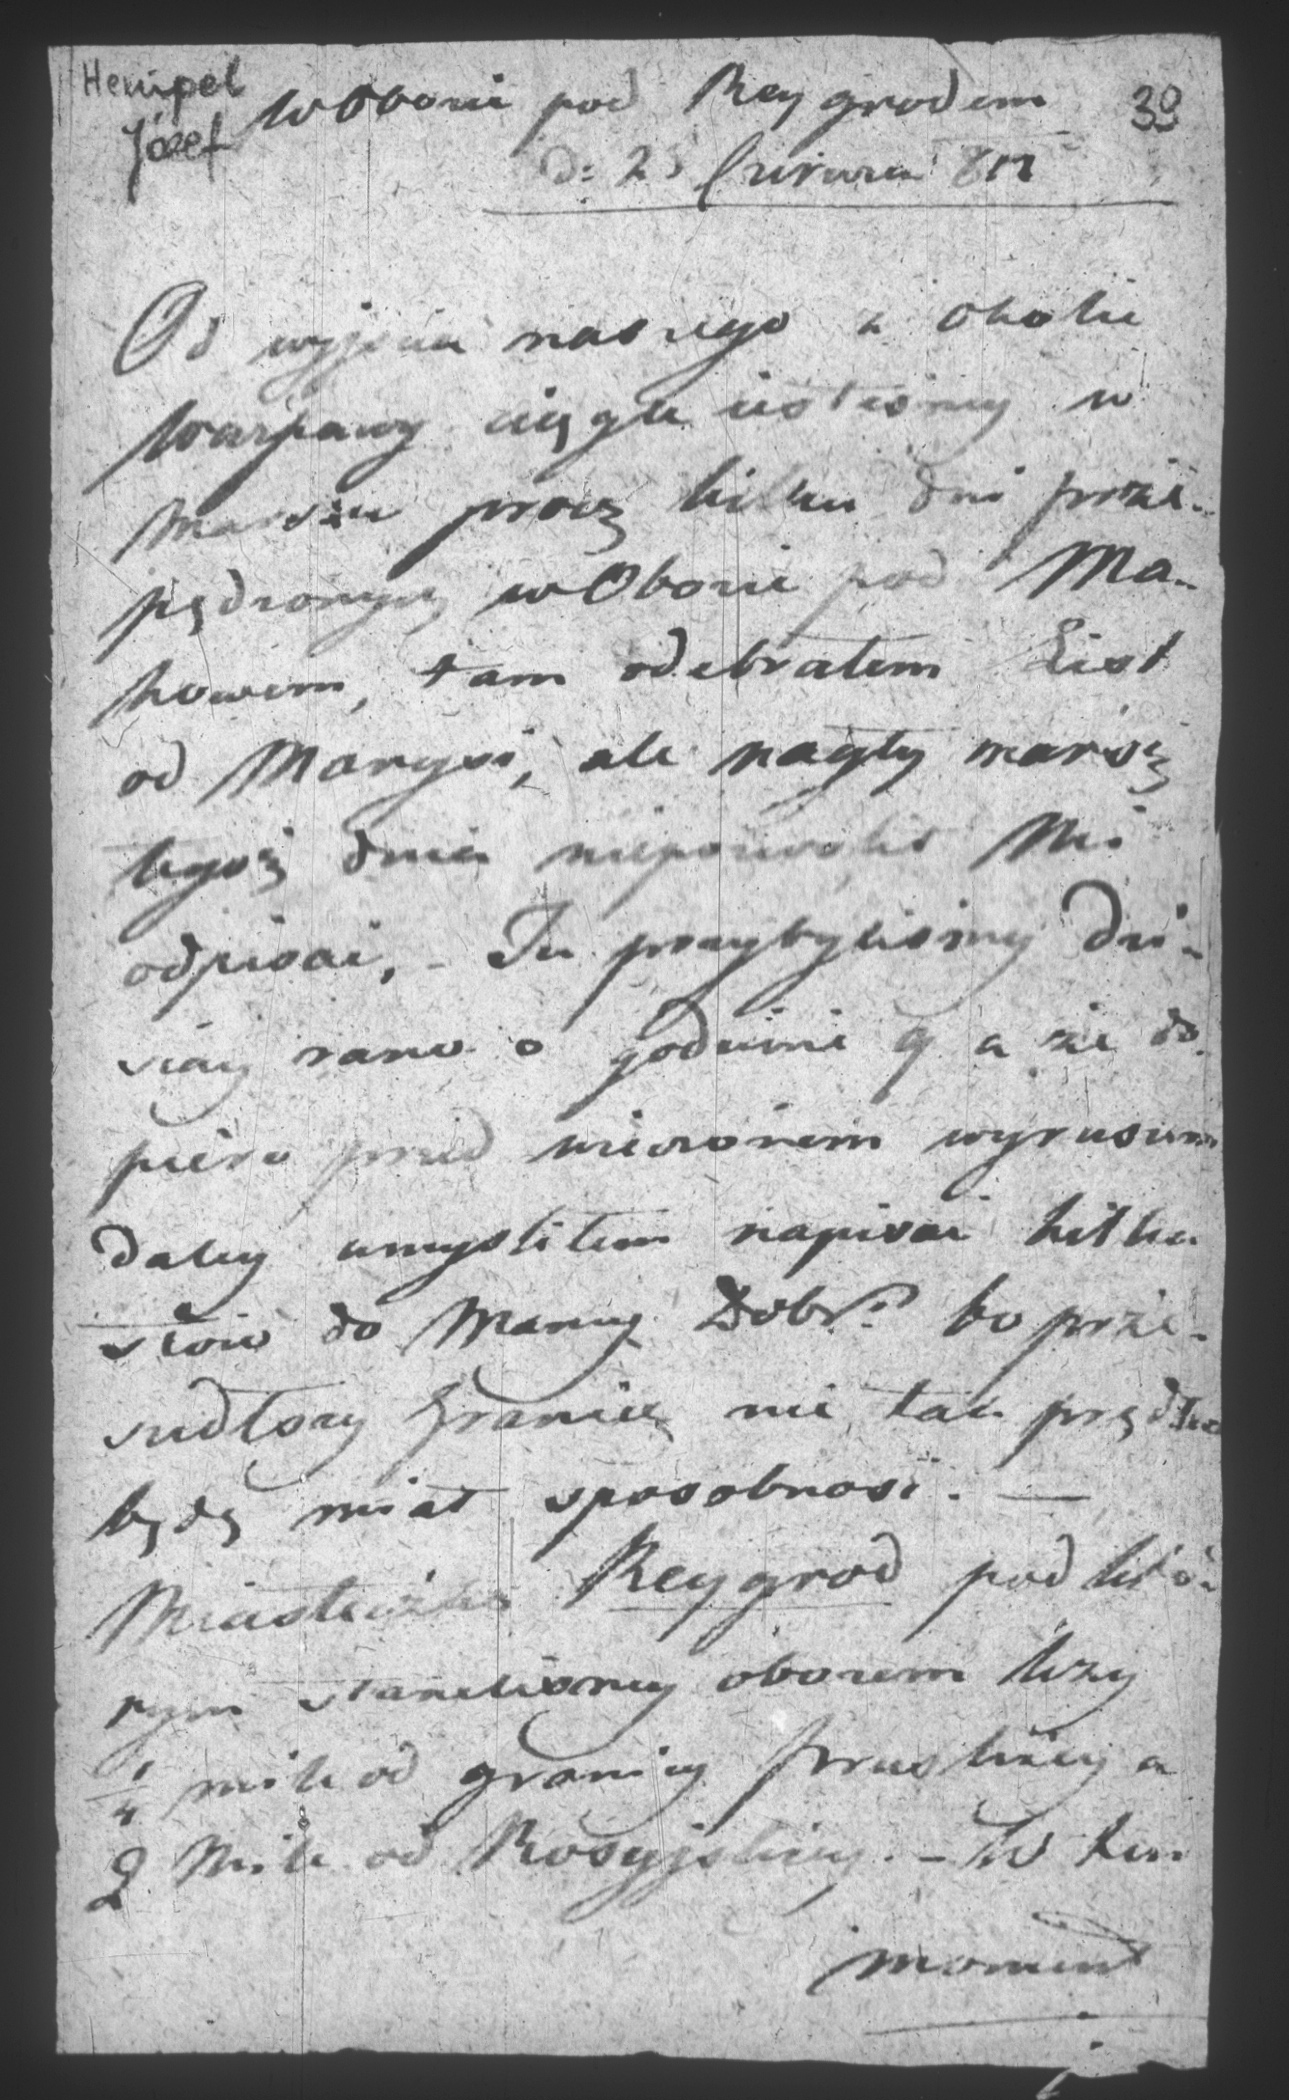 Hempel
Józef
w Obozie pod Reygrodem
39
d: 25 Czerwca 812
Od wyjścia naszego z okolic
Warszawy ciągle iesteśmy w
marszu procz kilku dni prze-
pędzonych w Obozie pod Ma-
kowem, tam odebrałem List
od Marysi, ale nagły marsz
tegoż dnia niepozwolił Mi
odpisać, - Tu przybyliśmy dzi-
siay rano o godzinie 9 a że do-
piero przed wieczorem wyruszem
daley umysliłem napisać kilka
słów do Mamy Dobr: bo prze-
szedłszy Granicę nie tak prędko
będę miał sposobność. —
Miasteczko Reygrod pod któ-
rym stanęliśmy obozem leży
1/4 mili od granicy Pruskiey a
2 Mile od Rosyjskiey. - W tem
moment